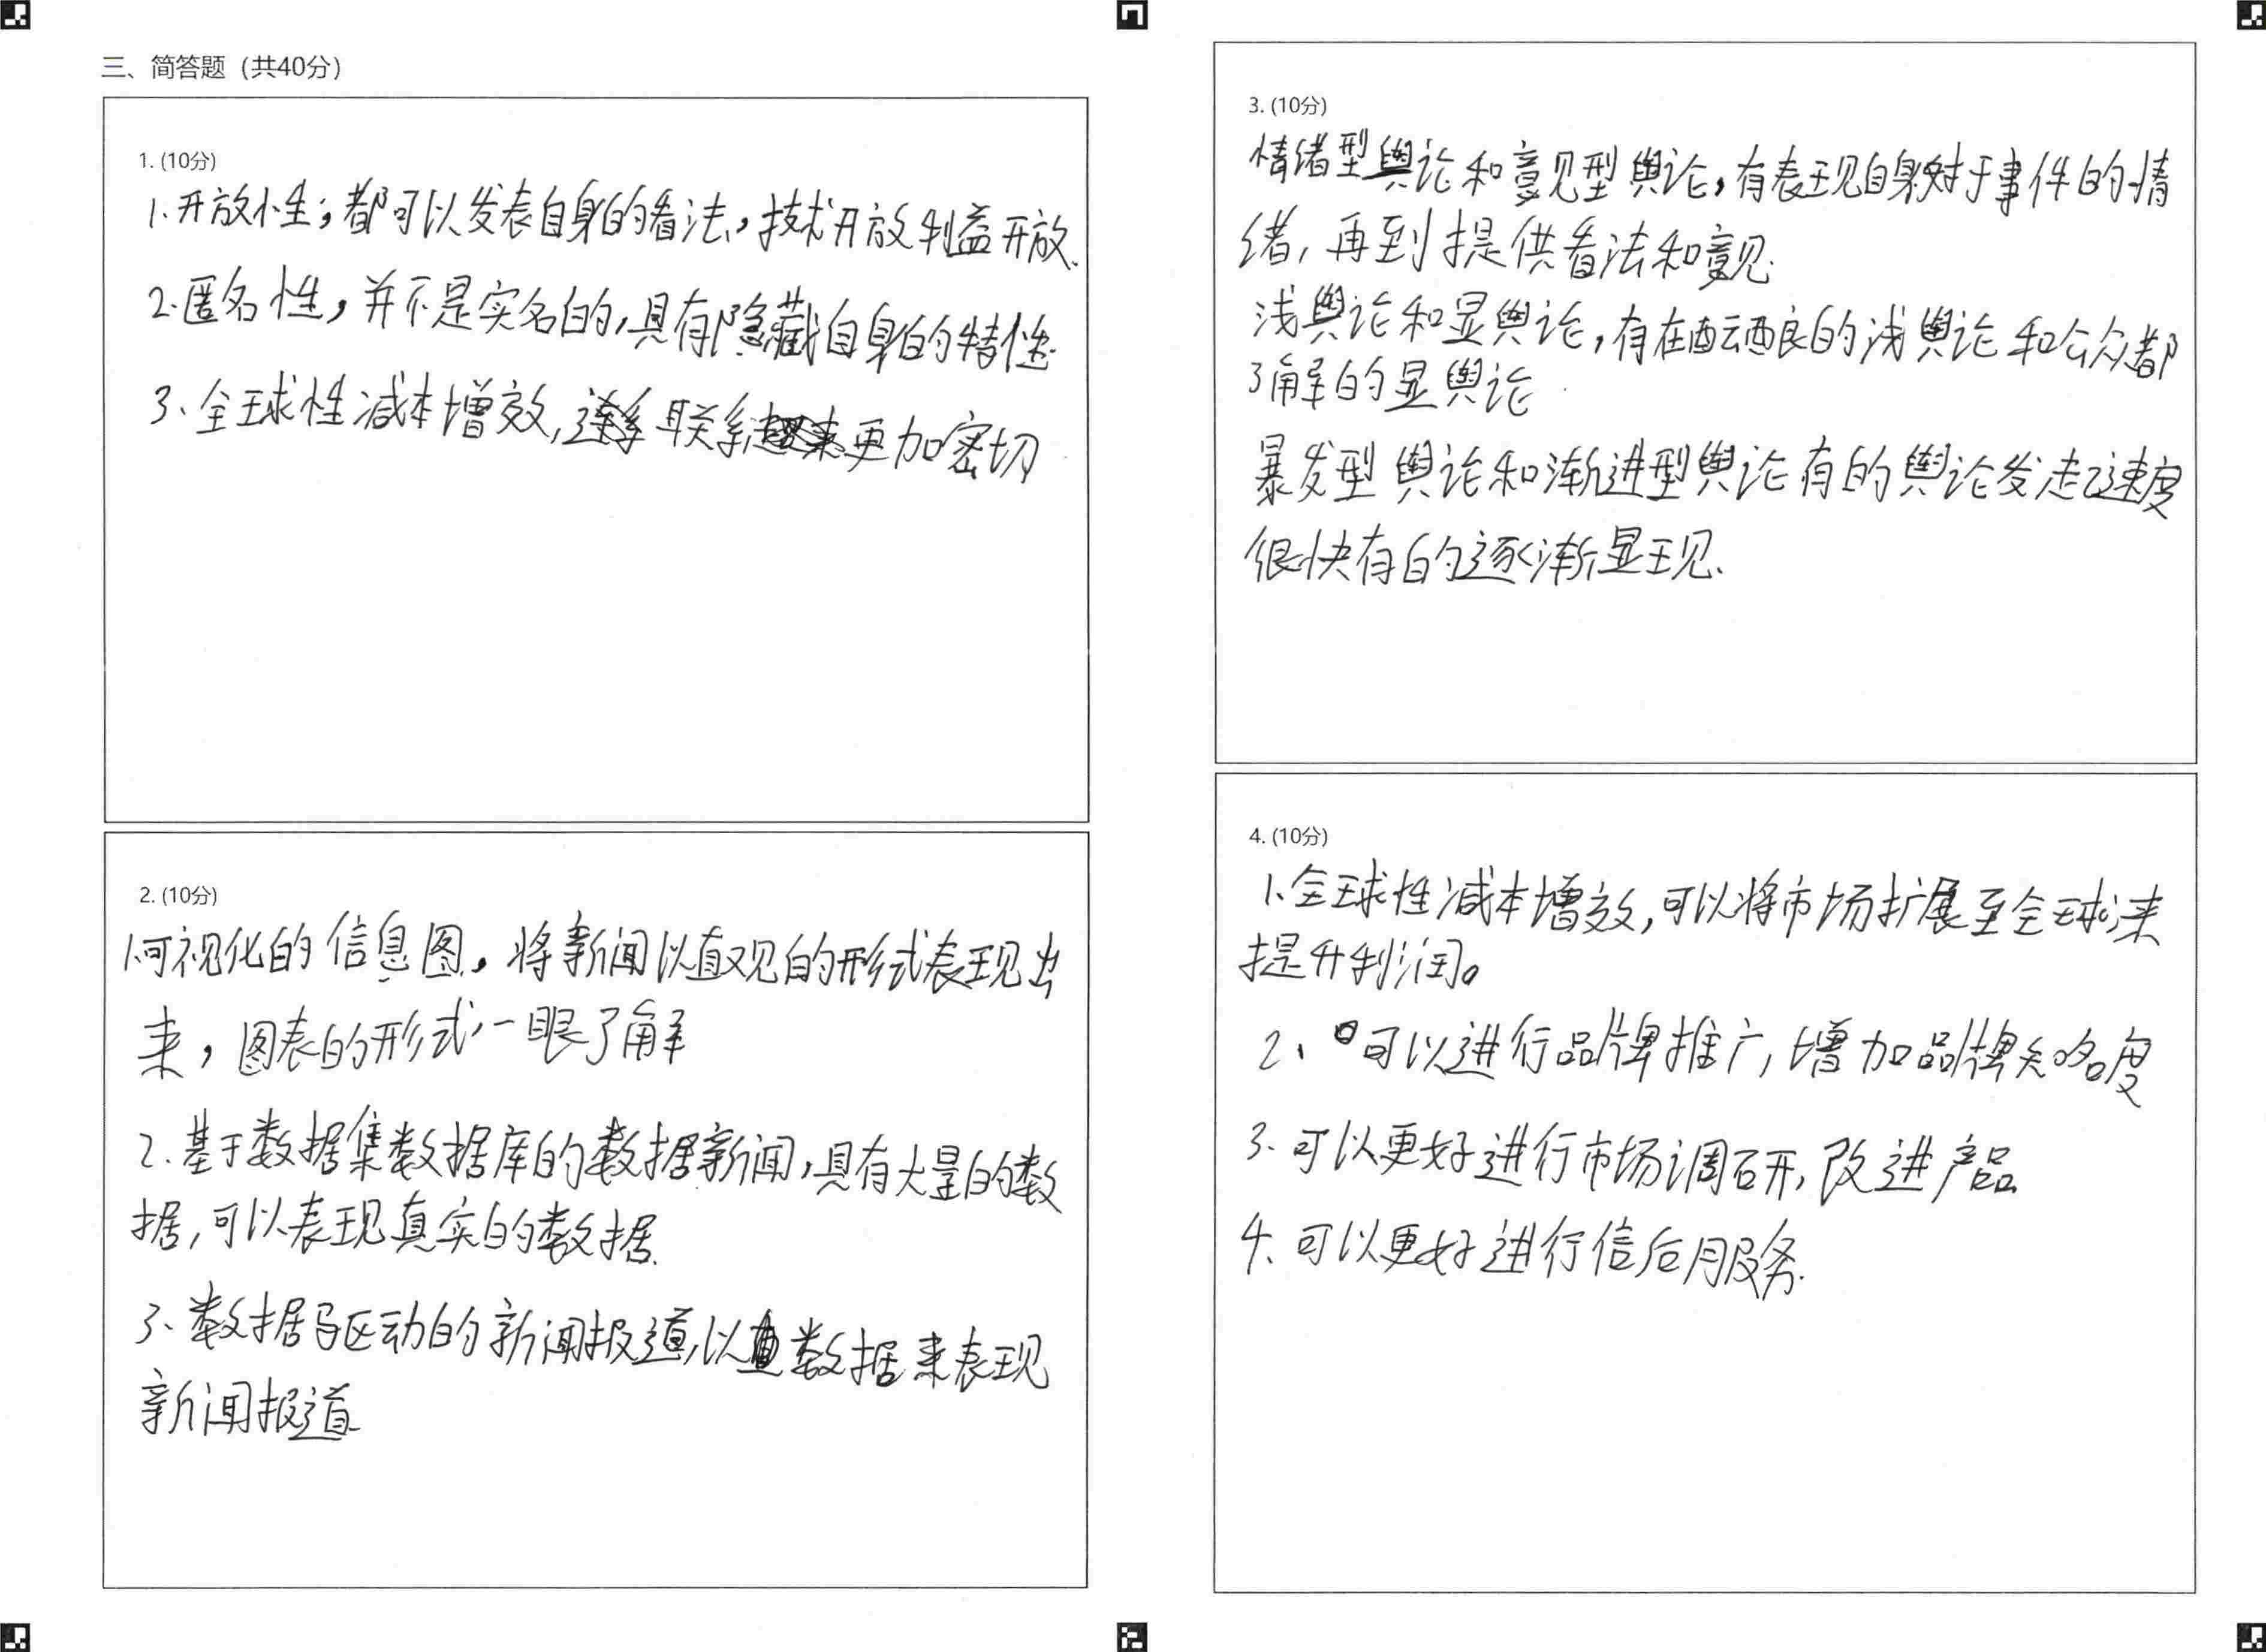 三、简答题（共40分）
1. (10分)
1.开放性；都可以发表自身的看法，技术开放利益开放.
2.匿名性，并不是实名的，具有隐藏自身的特性.
3、全球性减本增效，联系更加密切
2. (10分)
1.可视化的信息图，将新闻以直观的形式表现出
来，图表的形式一眼了解
2.基于数据集数据库的数据新闻，具有大量的数
据，可以表现真实的数据.
3、数据驱动的新闻报道，以数据来表现
新闻报道
3. (10分)
情绪型舆论和意见型舆论，有表现自身对于事件的情
绪，再到提供看法和意见.
浅舆论和显舆论，存在酝酿的浅舆论和公众都
了解的显舆论.
暴发型舆论和渐进型舆论有的舆论发走速度
很快有的逐渐显现.
4. (10分)
1、全球性减本增效，可以将市场扩展至全球来
提升利润。
2、可以进行品牌推广，增加品牌知名度
3、可以更好进行市场调研，改进产品
4、可以更好进行信后服务.